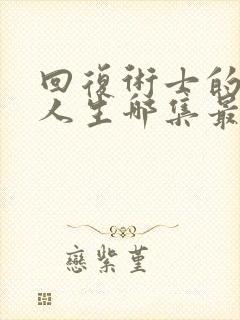 回復術士的
人生哪集最
戀紫堇